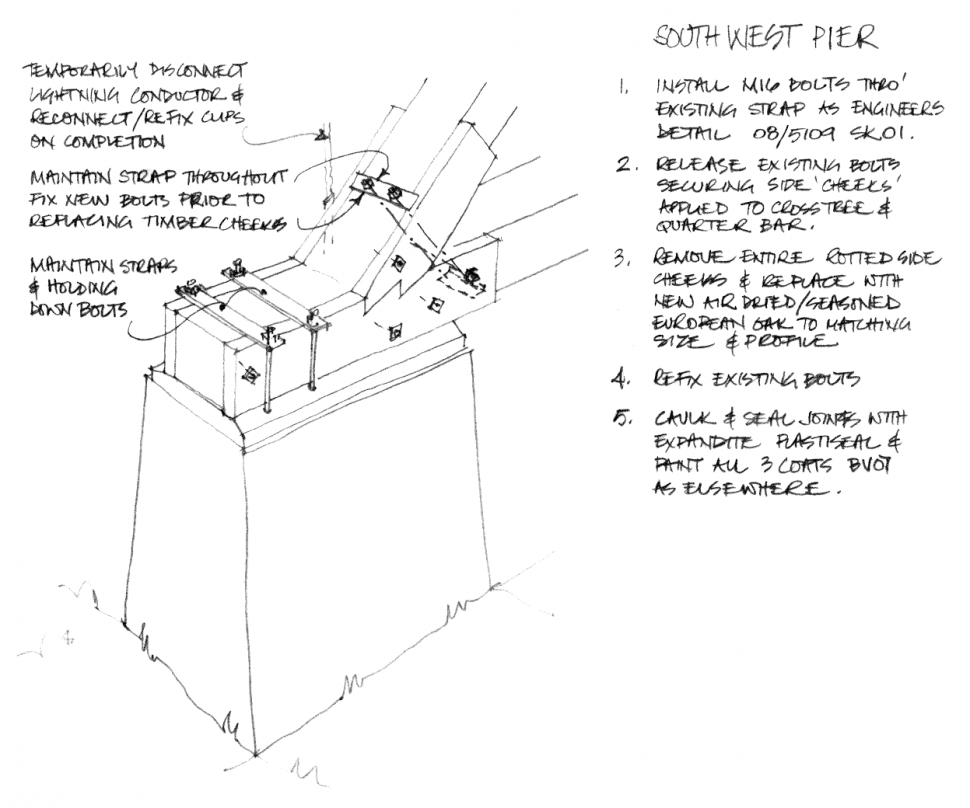 SOUTH WEST PIER
TEMPORARILY DISCONNECT
LIGHTNING CONDUCTOR &
RECONNECT/REFIX CLIPS
ON COMPLETION
MAINTAIN STRAP THROUGHOUT
FIX NEW BOLTS PRIOR TO
REPLACING TIMBER CHEEKS
MAINTAIN STRAPS
& HOLDING
DOWN BOLTS
1. INSTALL M16 BOLTS THRO'
EXISTING STRAP AS ENGINEERS
DETAIL 08/5109 SK.01.
2. RELEASE EXISTING BOLTS
SECURING SIDE 'CHEEKS'
APPLIED TO CROSSTREE &
QUARTER BAR.
3. REMOVE ENTIRE ROTTED SIDE
CHEEKS & REPLACE WITH
NEW AIR DRIED/SEASONED
EUROPEAN OAK TO MATCHING
SIZE & PROFILE
4. REFIX EXISTING BOLTS
5. CAULK & SEAL JOINTS WITH
EXPANDITE PLASTISEAL &
PAINT ALL 3 COATS BVOT
AS ELSEWHERE.